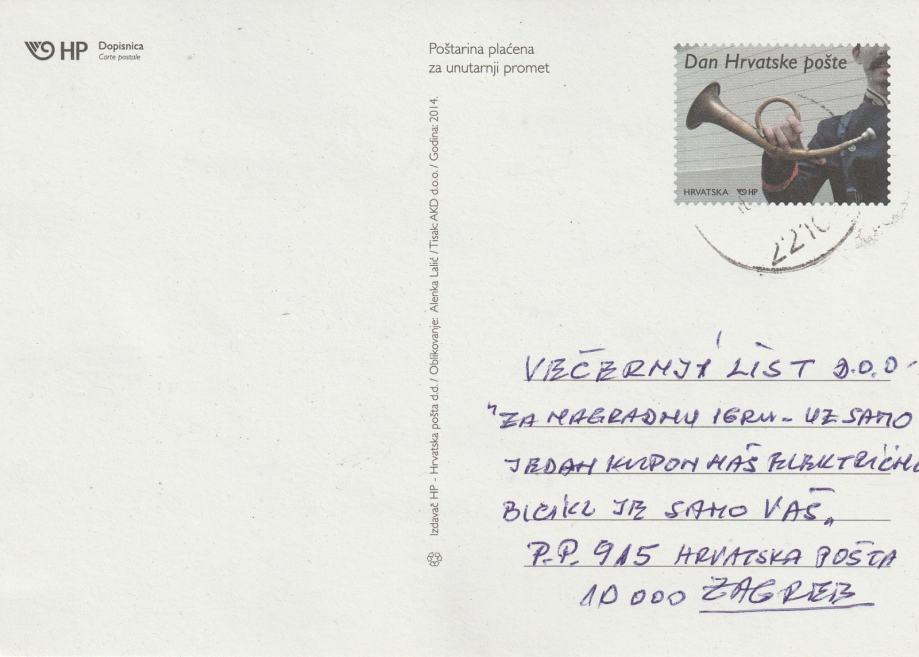 HP Dopisnica
Carte postale
Poštarina plaćena
za unutarnji promet
Dan Hrvatske pošte
HRVATSKA HP
22.10
Izdavač HP - Hrvatska pošta d.d./ Oblikovanje: Alenka Lalić / Tisak: AKD d.o.o. / Godina: 2014.
VEČERNJI LIST D.O.O.
"ZA NAGRADNU IGRU - UZ SAMO
JEDAN KUPON NAŠ ELEKTRIČNI
BICIKL JE SAMO VAŠ"
P.P. 915 HRVATSKA POŠTA
10 000 ZAGREB